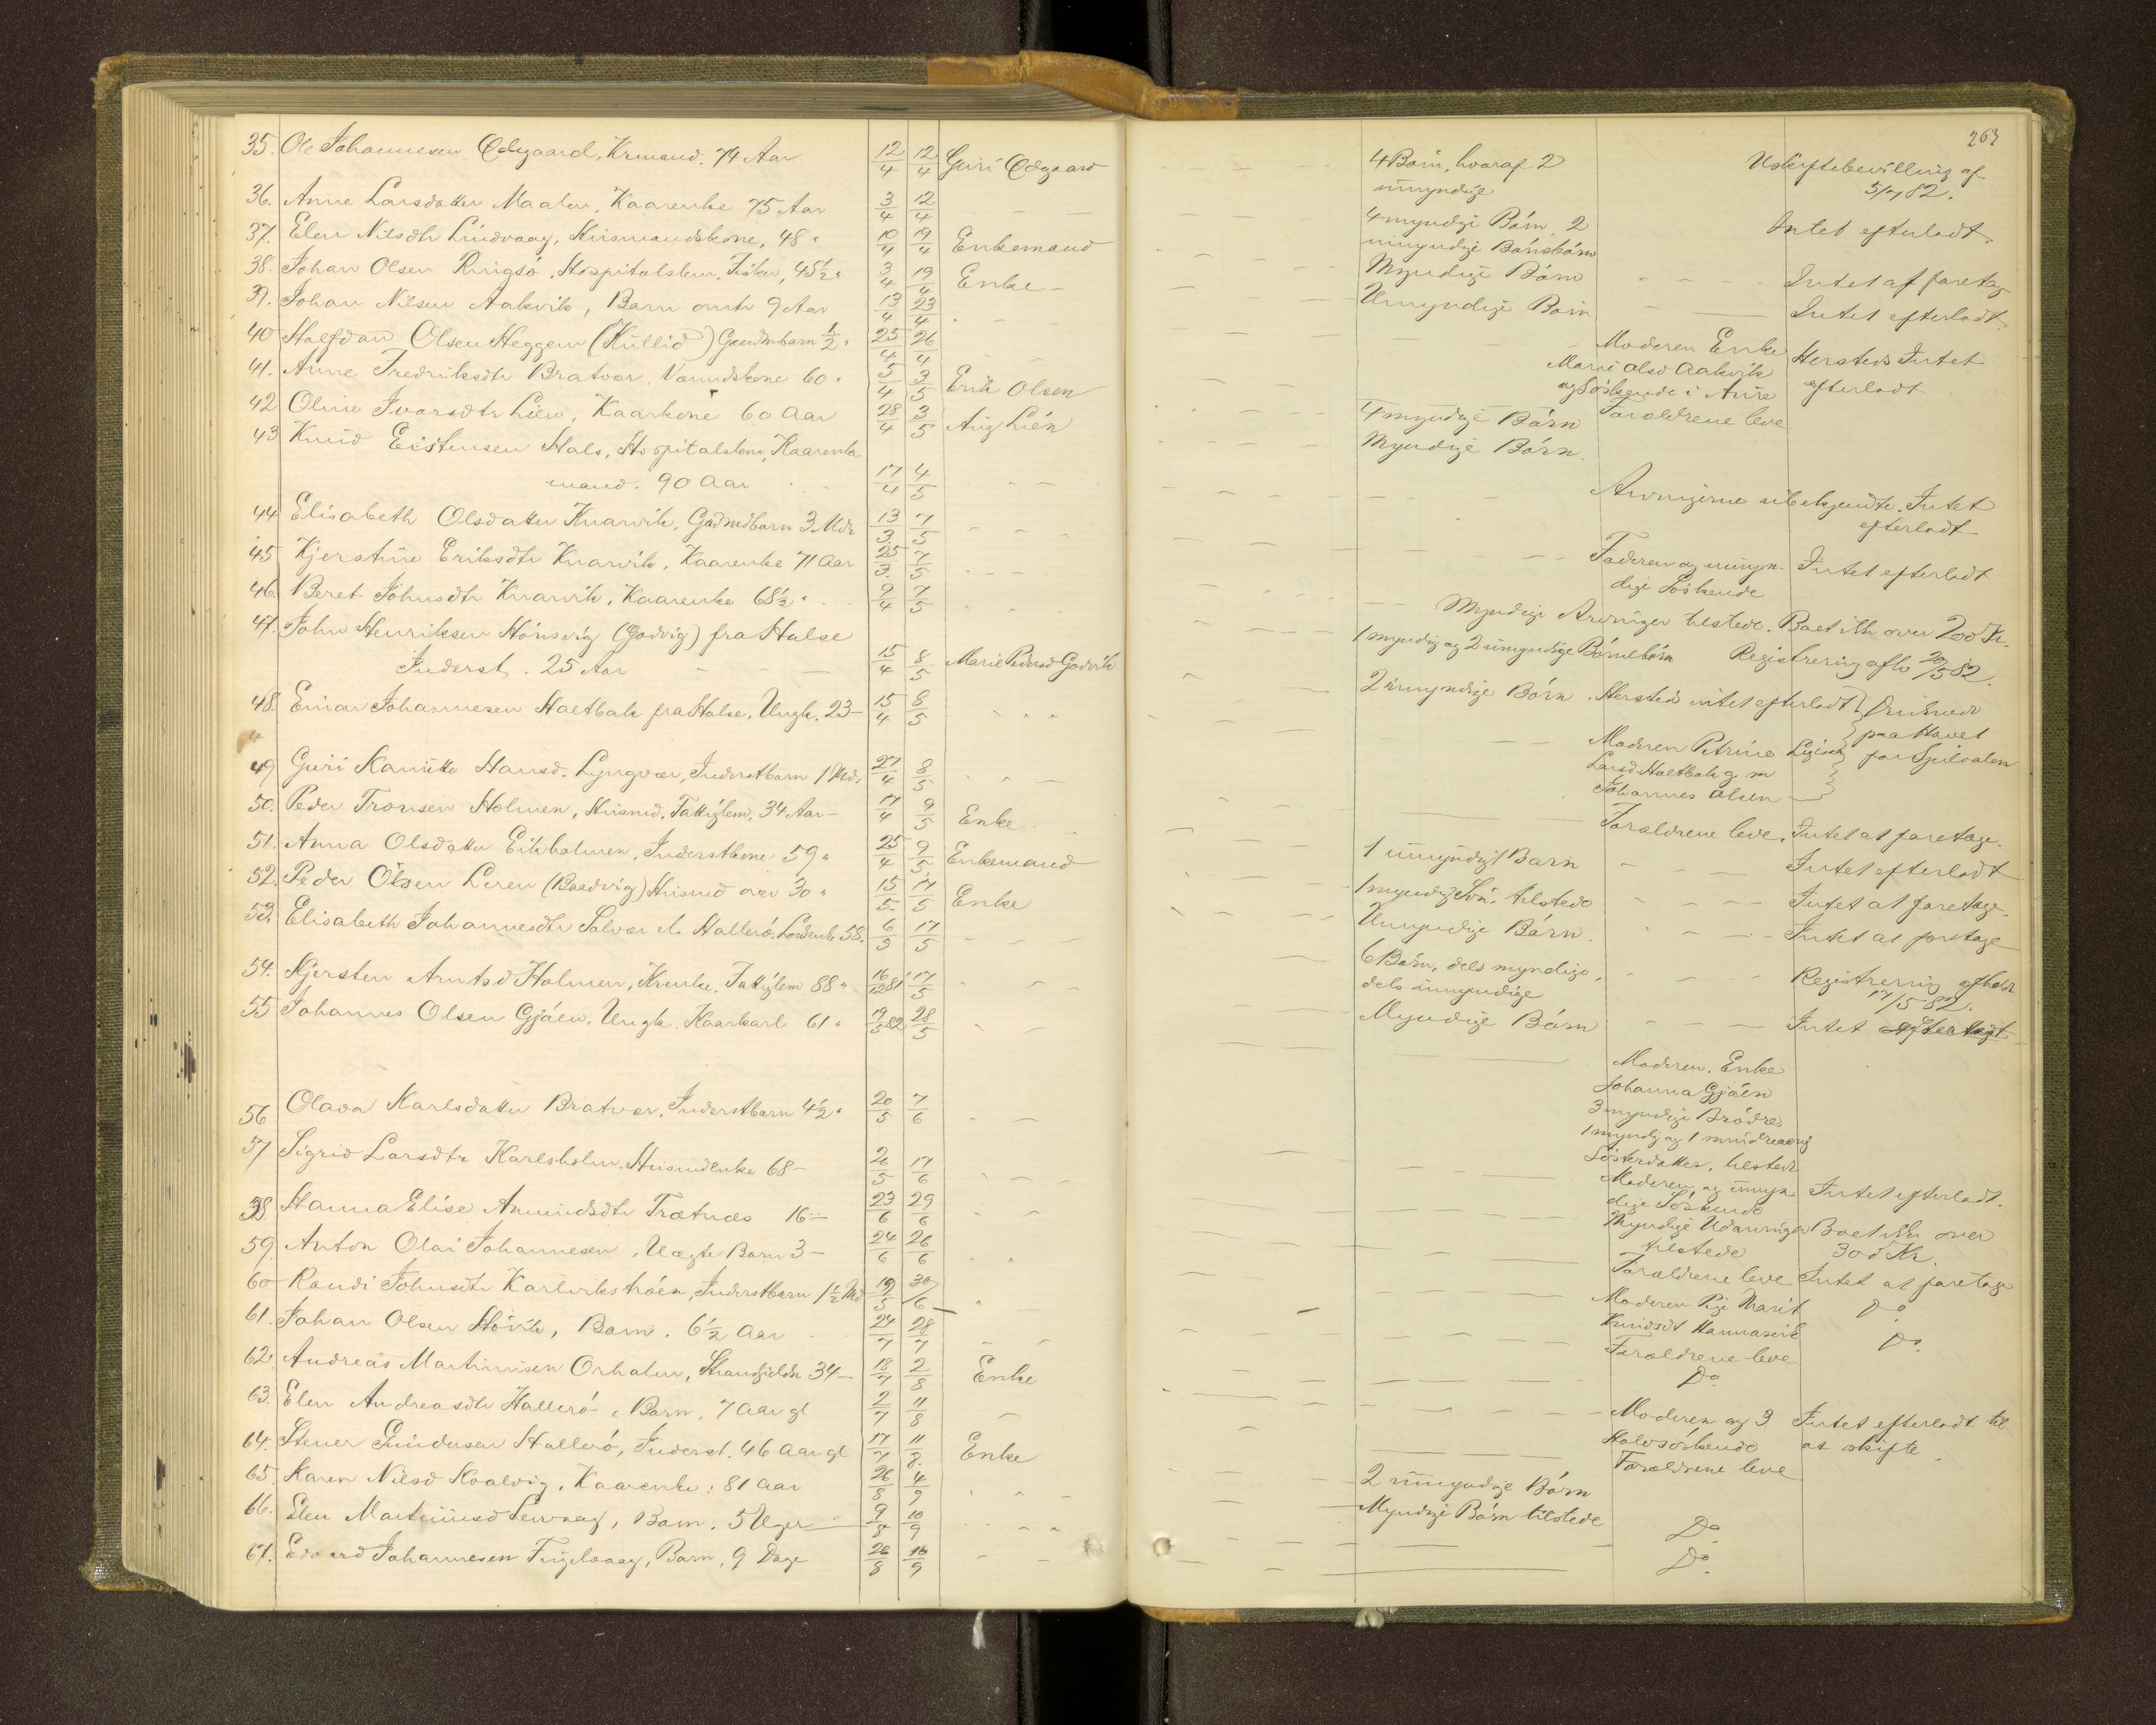 263
35. Ole Johannesen Ødegaard, Krmand. 74 Aar 12/4 12/4 Guri Ødegaard
4 Børn, hvoraf 2 umyndige
Uskiftebevilling af 5/7 82.
36. Anne Larsdatter Maalen, Kaarenke 75 Aar 3/4 12/4
4 myndige Børn, 2 umyndige Børnsbørn
Intet efterladt.
37. Elen Nilsdtr Lindvaag, Husmandskone, 48 " 10/4 19/4 Enkemand
Myndige Børn
Intet at foretag
38. Johan Olsen Ringsø, Hospitalslem, Fisker, 45½ " 3/4 19/4 Enke
Umyndige Børn
Intet efterladt.
39. Johan Nilsen Aakvik, Barn omtr 9 Aar 13/4 23/4
Moderen Enke
Marie Olsd Aakvik
og Søskende i Aure
Hersteds Intet
efterladt
40 Halfdan Olsen Heggem (Küllid) Gaardmbarn ½ " 25/4 26/4
Forældrene leve
41. Anne Fredriksdtr Bratvær, Vaanndskone 60 " 5/4 3/5 Erik Olsen
4 myndige Børn
42 Oline Ivarsdtr Lien, Kaarkone 60 Aar 28/4 3/5 Aug Lién
Myndige Børn.
43 Knud Eistensen Hals, Hospitalslem, Kaarenke
mand. 90 Aar 17/4 4/5
Arvingerne ubekjendte. Intet
efterladt
44 Elisabeth Olsdatter Knarvik, Gaardmdbarn 3 Mdr 13/3. 7/5
Faderen og umyn-
dige Søskende
Intet efterladt
45 Kjerstine Eriksdtr Knarvik, Kaarenke 71 Aar 25/3. 7/5
Myndige Arvinger tilstede. Boet ikke over 200 Kr.
46. Beret Johnsdtr Knarvik, Kaarenke 68½ " 9/4 7/5
1 myndig og 2 umyndige Børnebørn Registrering afh 20/5 82.
47. John Henriksen Hönsvig (Godvig) fra Halse
Inderst. 25 Aar 15/4 8/5 Marie Pedersd Godvik
2 umyndige Børn. Hersteds intet efterladt
48. Einar Johannesen Haltbak fra Halse. Ungk. 23 - 15/4 8/5
Moderen Petrine
Larsd. Haltbak g. m
Johannes Olsen
Druknede
paa Havet
49 Guri Kanutte Hansd. Lyngvær, Inderstbarn 1 Md. 27/4 8/5
Forældrene leve. Intet at foretage.
50. Peder Tronsen Holmen, Husmd. Fattiglem, 34 Aar - 17/4 9/5 Enke
1 umyndigt Barn
Intet efterladt
51. Anna Olsdatter Eikholmen, Inderstkone 59 " 25/4 9/5 Enkemand
1 myndig Søn, tilstede
Intet at foretage.
52. Peder Olsen Leren (Baadvig) Husmd over 30 " 15/5. 17/5 Enke
Umyndige Børn.
Intet at foretage
53. Elisabeth Johannesdtr Solvær el. Hallerö. 58. 6/5 17/5
6 Børn, dels myndige,
dels umyndige
Registrering afholdt
17/5 82.
54. Kjersten Arntsd Holmen, Krenke, Fattiglem 88 " 16/12 81 17/5
Myndige Børn
Intet
55 Johannes Olsen Gjøen. Ungk. Kaarkarl 61 " 19/5 82 28/5
Moderen, Enke
Johanna Gjøen
3 myndige Brødre,
1 myndig og 1 mindreaarig
Søsterdatter, tilstede
56 Olava Karlsdatter Bratvær, Inderstbarn 4½ " 20/5 7/6
Moderen og umyn
dige Søskende
Intet efterladt.
57 Sigrid Larsdtr Karlsholm. Husmdenke 68 - 2/5 17/6
Myndige Udarvinger
tilstede
Boet ikke over
300 Kr.
58. Hanna Elise Amundsdtr Trætnæs 16 - 23/6 29/6
Forældrene leve Intet at foretage
59. Anton Olai Johannesen, Uægte Barn 3 - 24/6 26/6
Moderen Pige Marit
Knudsdt Hannasvik
Do.
60 Randi Johnsdtr Karlvikstrøen, Inderstbarn 1½ Md 19/5 30/6
Forældrene leve
Do.
61. Johan Olsen Hövik, Barn. 6½ Aar 24/7 28/7
Do.
62. Andreas Martinusen Orholm, Strandsidder 34 - 18/7 2/8 Enke
Moderen og 3
Halvsøskende
Intet efterladt til
at skifte.
63. Elen Andreasdtr Hallerö, Barn, 7 Aar gl 2/7 11/8
Forældrene leve
64. Stener Gundersen Hallerö, Inderst. 46 Aar gl 17/7 11/8. Enke
2 umyndige Børn
65. Karen Nilsd Kvalvig, Kaarenke, 81 Aar 26/8 4/9
Myndige Børn tilstede
66. Elen Martinusd Leirvaag, Barn. 5 Uger 9/8 10/9
Do
67. Edvard Johannesen Fuglevaag, Barn, 9 Dage 26/8 10/9
Do.